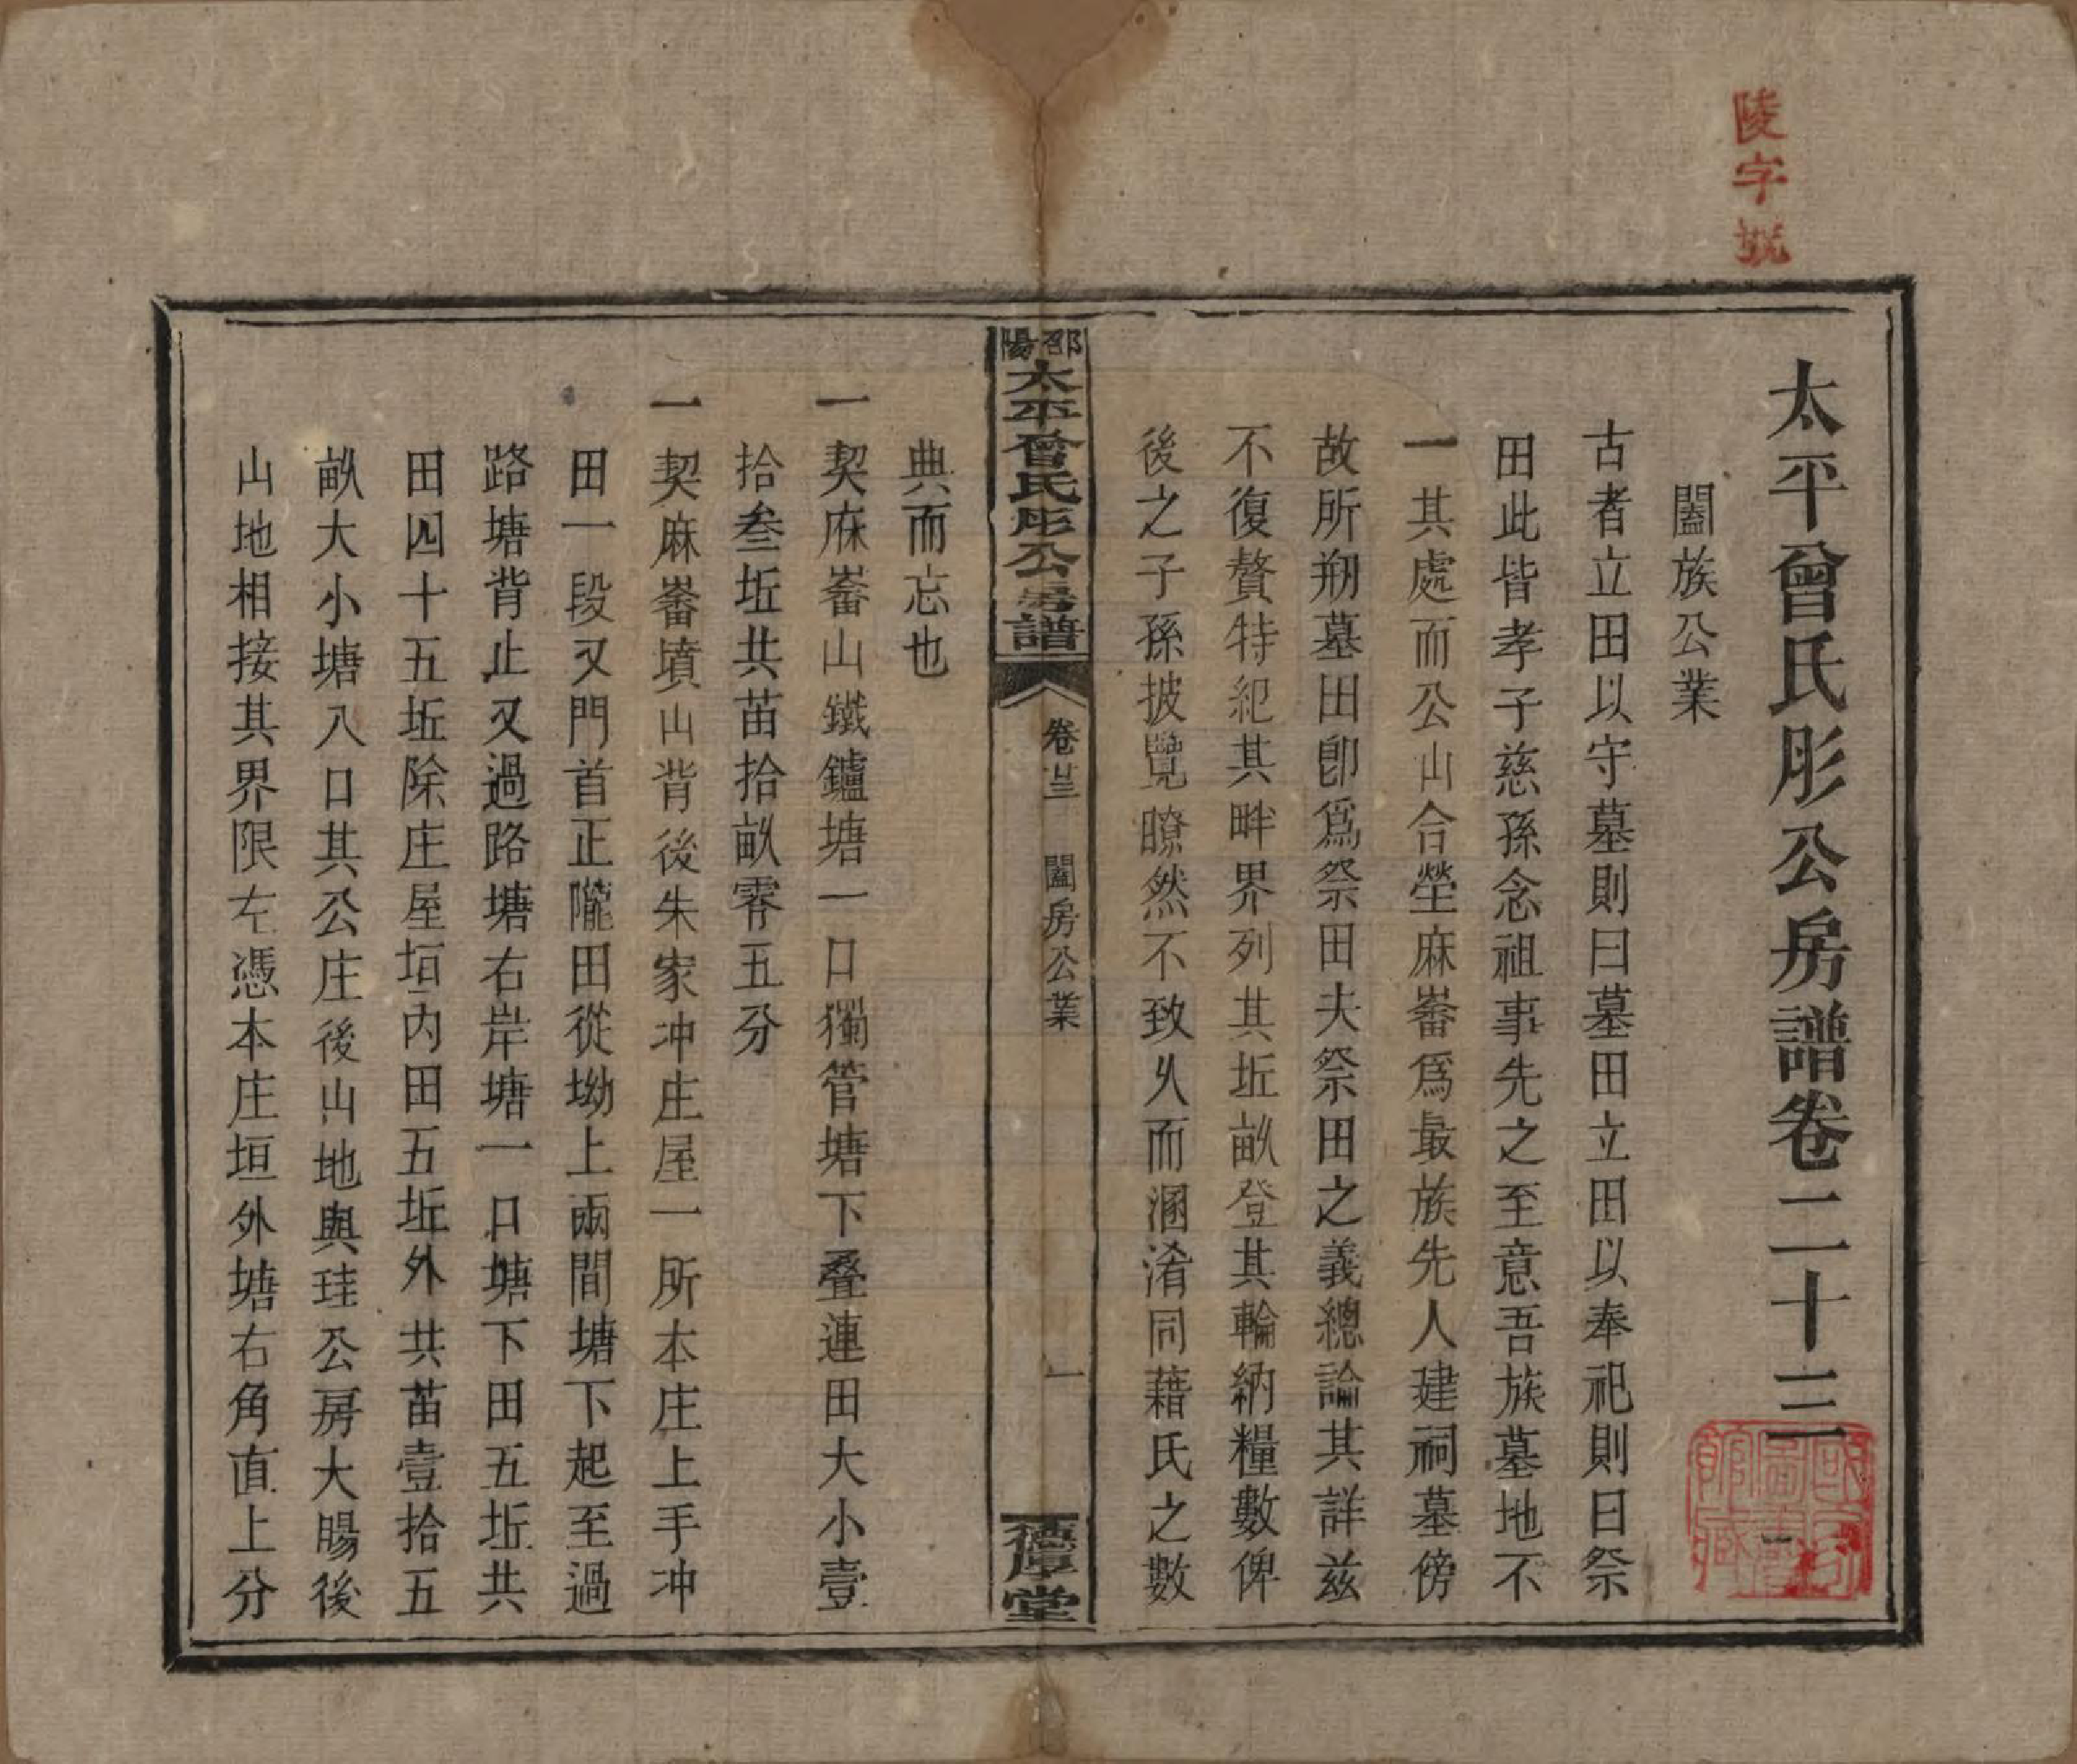 陵字號
太平曾氏彤公房譜卷二十三
闔族公業
古者立田以守墓則曰墓田立田以奉祀則曰祭
田此皆孝子慈孫念祖事先之至意吾族墓地不
一其處而公山合塋麻崙爲最族先人建祠墓傍
故所剏墓田卽爲祭田夫祭田之義總論其詳茲
不復贅特紀其畔界列其坵畝登其輪納糧數俾
後之子孫披覽瞭然不致乆而溷淆同藉氏之數
邵陽太平曾氏彤公房譜
卷廿三 闔房公業
一
德厚堂
典而忘也
一契麻崙山鐵鑪塘一口獨管塘下叠連田大小壹
拾叁坵共苗拾畝零五分
一契麻崙墳山背後朱家冲庄屋一所本庄上手冲
田一段又門首正隴田從坳上兩間塘下起至過
路塘背止又過路塘右岸塘一口塘下田五坵共
田四十五坵除庄屋垣內田五坵外共苗壹拾五
畝大小塘八口其公庄後山地與珪公房大腸後
山地相接其界限左憑本庄垣外塘右角直上分
國家圖書館藏